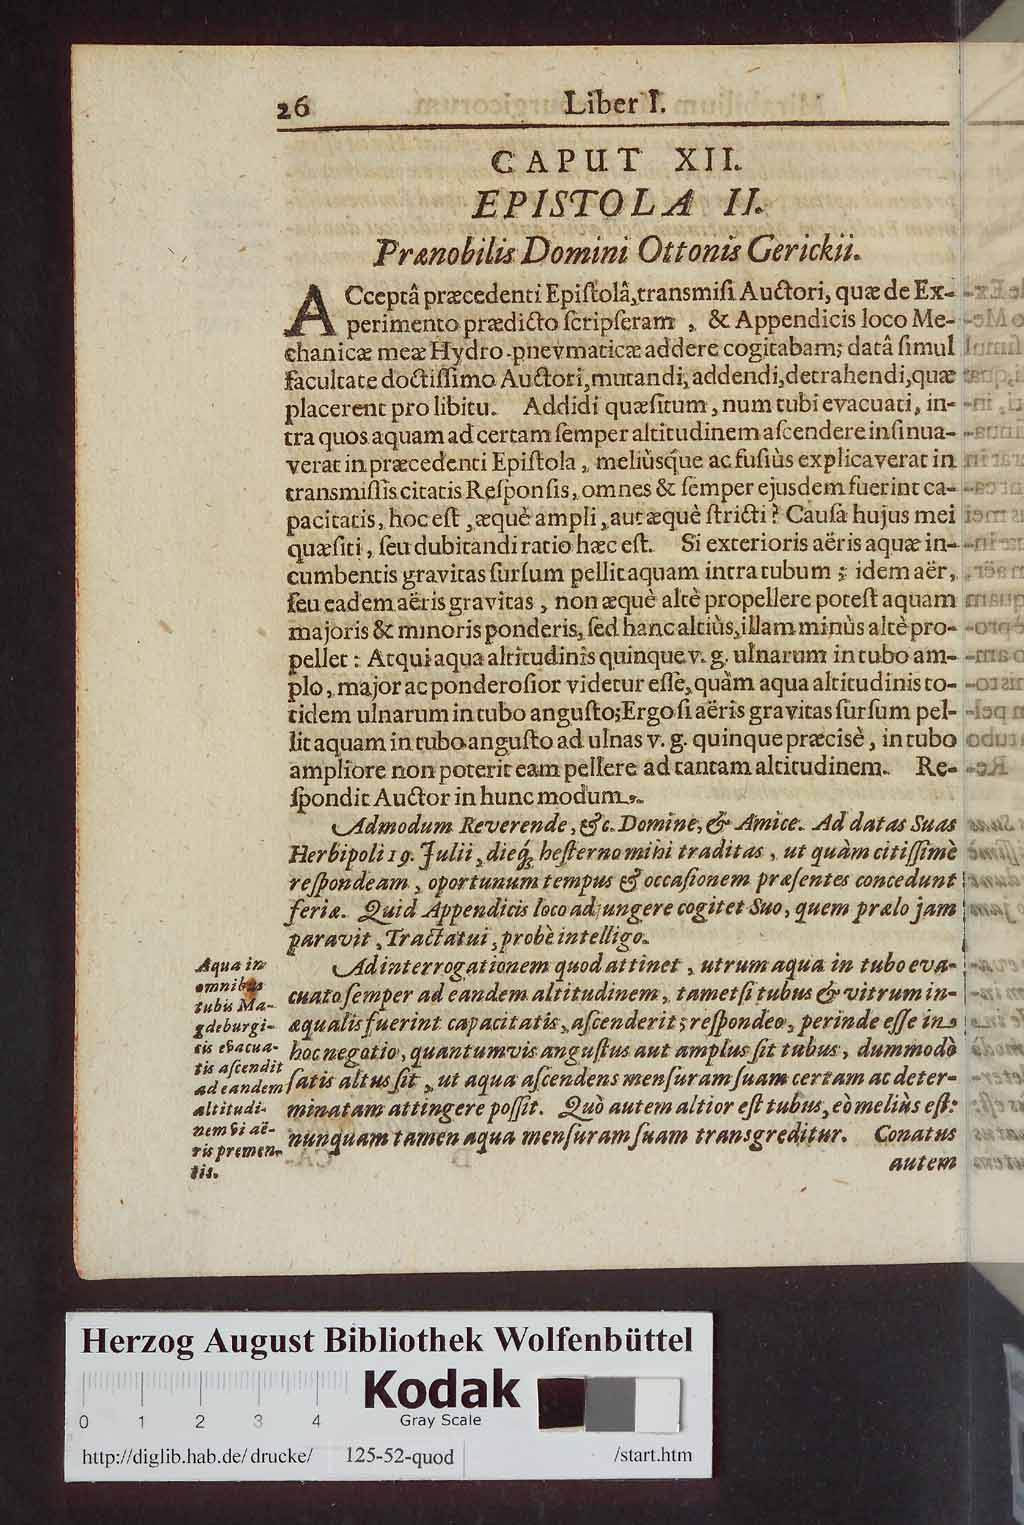 26 Liber I.
CAPUT XII.
EPISTOLA II.
Prænobilis Domini Ottonis Gerickii.
ACceptâ præcedenti Epiſtolâ, transmiſi Auctori, quæ de Ex-
perimento prædicto ſcripſeram, & Appendicis loco Me-
chanicæ meæ Hydro-pnevmaticæ addere cogitabam; datâ ſimul
facultate doctiſſimo Auctori, mutandi, addendi, detrahendi, quæ
placerent pro libitu. Addidi quæſitum, num tubi evacuati, in-
tra quos aquam ad certam ſemper altitudinem aſcendere inſinua-
verat in præcedenti Epiſtola, meliùsq́ue ac fuſiùs explicaverat in
transmiſſis citatis Reſponſis, omnes & ſemper ejusdem fuerint ca-
pacitatis, hoc eſt, æquè ampli, aut æquè ſtricti? Cauſa hujus mei
quæſiti, ſeu dubitandi ratio hæc eſt. Si exterioris aëris aquæ in-
cumbentis gravitas ſurſum pellit aquam intra tubum; idem aër,
ſeu eadem aëris gravitas, non æquè altè propellere poteſt aquam
majoris & minoris ponderis, ſed hanc altiùs, illam minùs altè pro-
pellet: Atqui aqua altitudinis quinque v. g. ulnarum in tubo am-
plo, major ac ponderoſior videtur eſſe, quàm aqua altitudinis to-
tidem ulnarum in tubo anguſto; Ergo ſi aëris gravitas ſurſum pel-
lit aquam in tubo anguſto ad ulnas v. g. quinque præcisè, in tubo
ampliore non poterit eam pellere ad tantam altitudinem. Re-
ſpondit Auctor in hunc modum.
Admodum Reverende, &c. Domine, & Amice. Ad datas Suas
Herbipoli 19. Julii, dieq́ꝫ heſterno mihi traditas, ut quàm citiſſimè
reſpondeam, oportunum tempus & occaſionem præſentes concedunt
feriæ. Quid Appendicis loco adjungere cogitet Suo, quem prælo jam
paravit, Tractatui, probè intelligo.
Ad interrogationem quod attinet, utrum aqua in tubo eva-
cuato ſemper ad eandem altitudinem, tametſi tubus & vitrum in-
æqualis fuerint capacitatis, aſcenderit; reſpondeo, perinde eſſe in
hoc negotio, quantumvis anguſtus aut amplus ſit tubus, dummodò
ſatis altus ſit, ut aqua aſcendens menſuram ſuam certam ac deter-
minatam attingere poſſit. Quò autem altior eſt tubus, eò meliùs eſt:
nunquam tamen aqua menſuram ſuam transgreditur. Conatus
autem
Aqua in
omnibus
tubis Ma-
gdeburgi-
cis evacua-
tis aſcendit
ad eandem
altitudi-
nem vi aë-
ris premen-
tis.
Herzog August Bibliothek Wolfenbüttel
Kodak
Gray Scale
0 1 2 3 4
http://diglib.hab.de/drucke/ 125-52-quod /start.htm